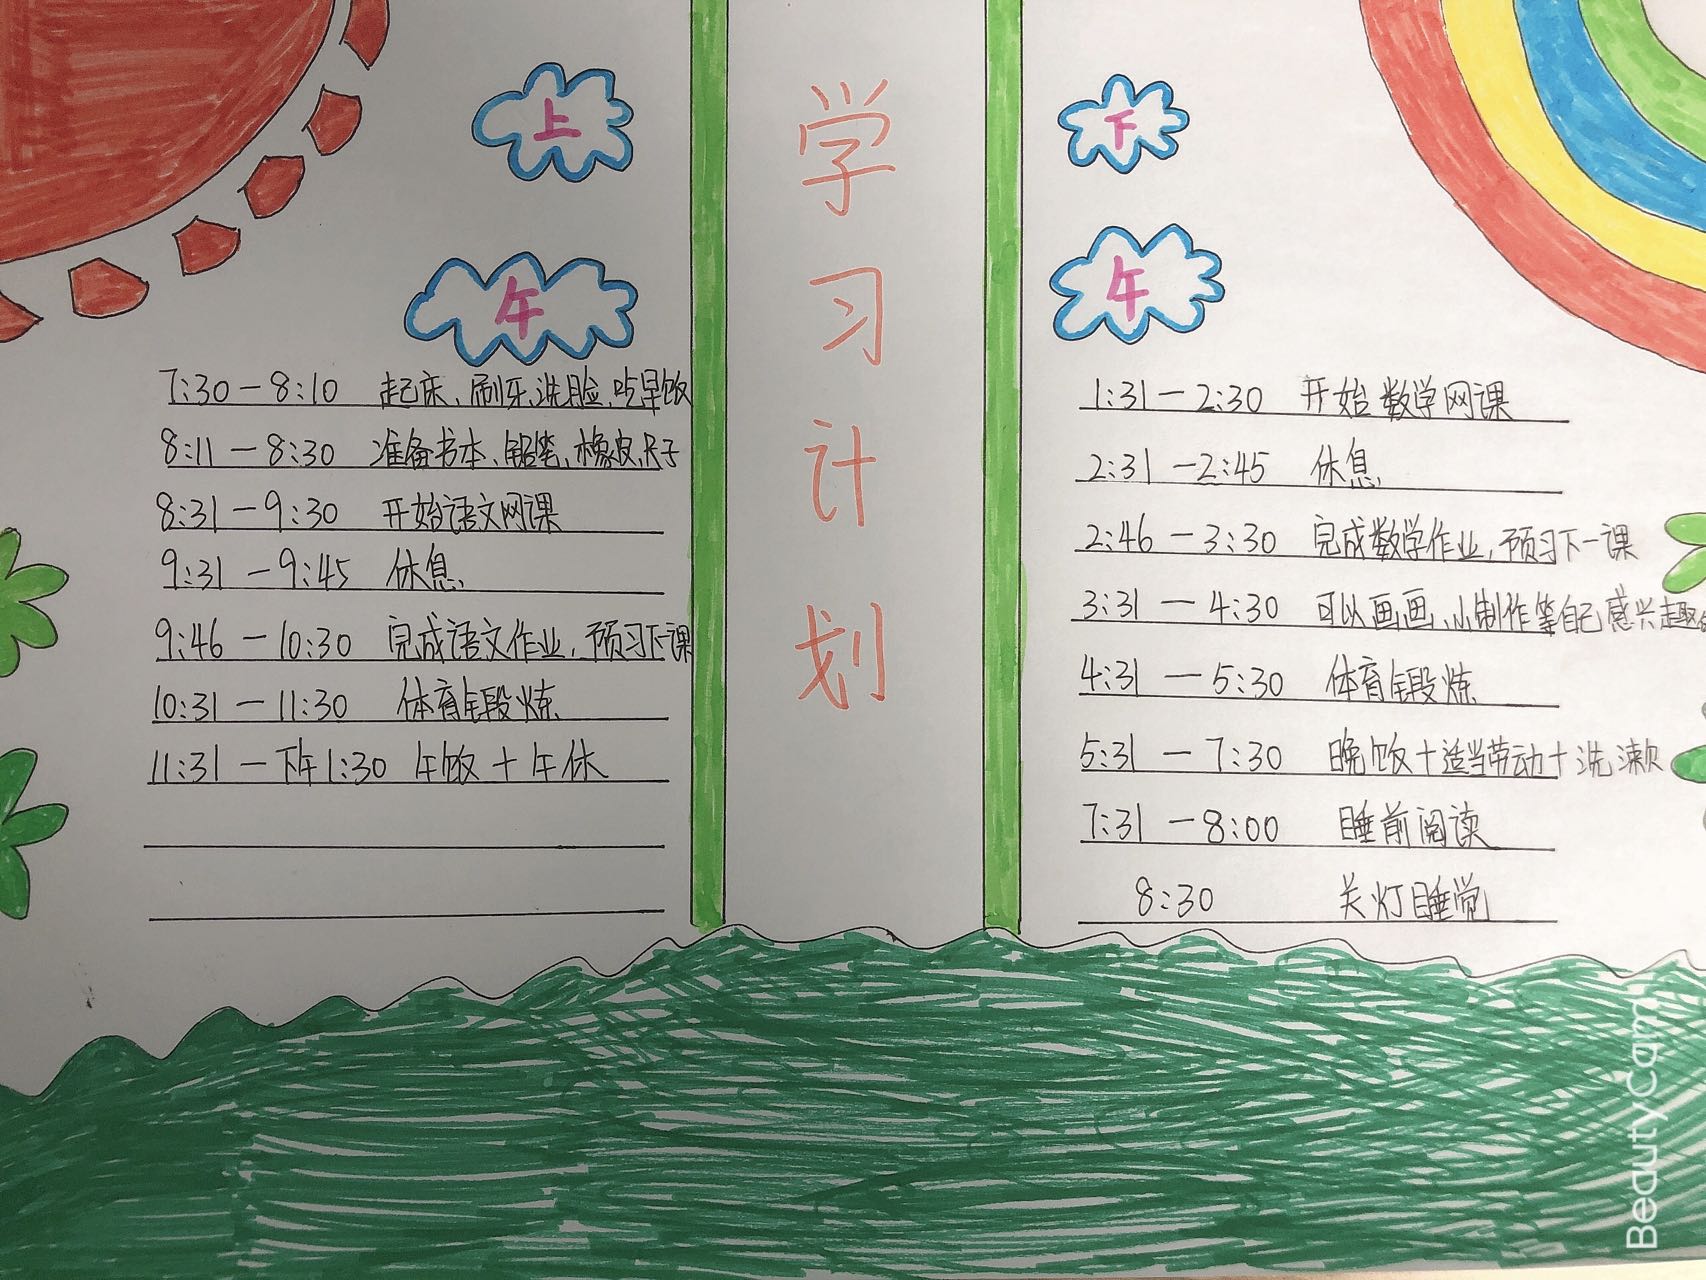 学习计划
上午
7:30－8:10 起床、刷牙、洗脸、吃早饭
8:11－8:30 准备书本、铅笔、橡皮、尺子
8:31－9:30 开始语文网课
9:31－9:45 休息
9:46－10:30 完成语文作业，预习下课
10:31－11:30 体育锻炼
11:31－下午1:30 午饭＋午休
下午
1:31－2:30 开始数学网课
2:31－2:45 休息
2:46－3:30 完成数学作业，预习下一课
3:31－4:30 可以画画、小制作等自己感兴趣
4:31－5:30 体育锻炼
5:31－7:30 晚饭＋适当劳动＋洗漱
7:31－8:00 睡前阅读
8:30 关灯睡觉
BeautyCam